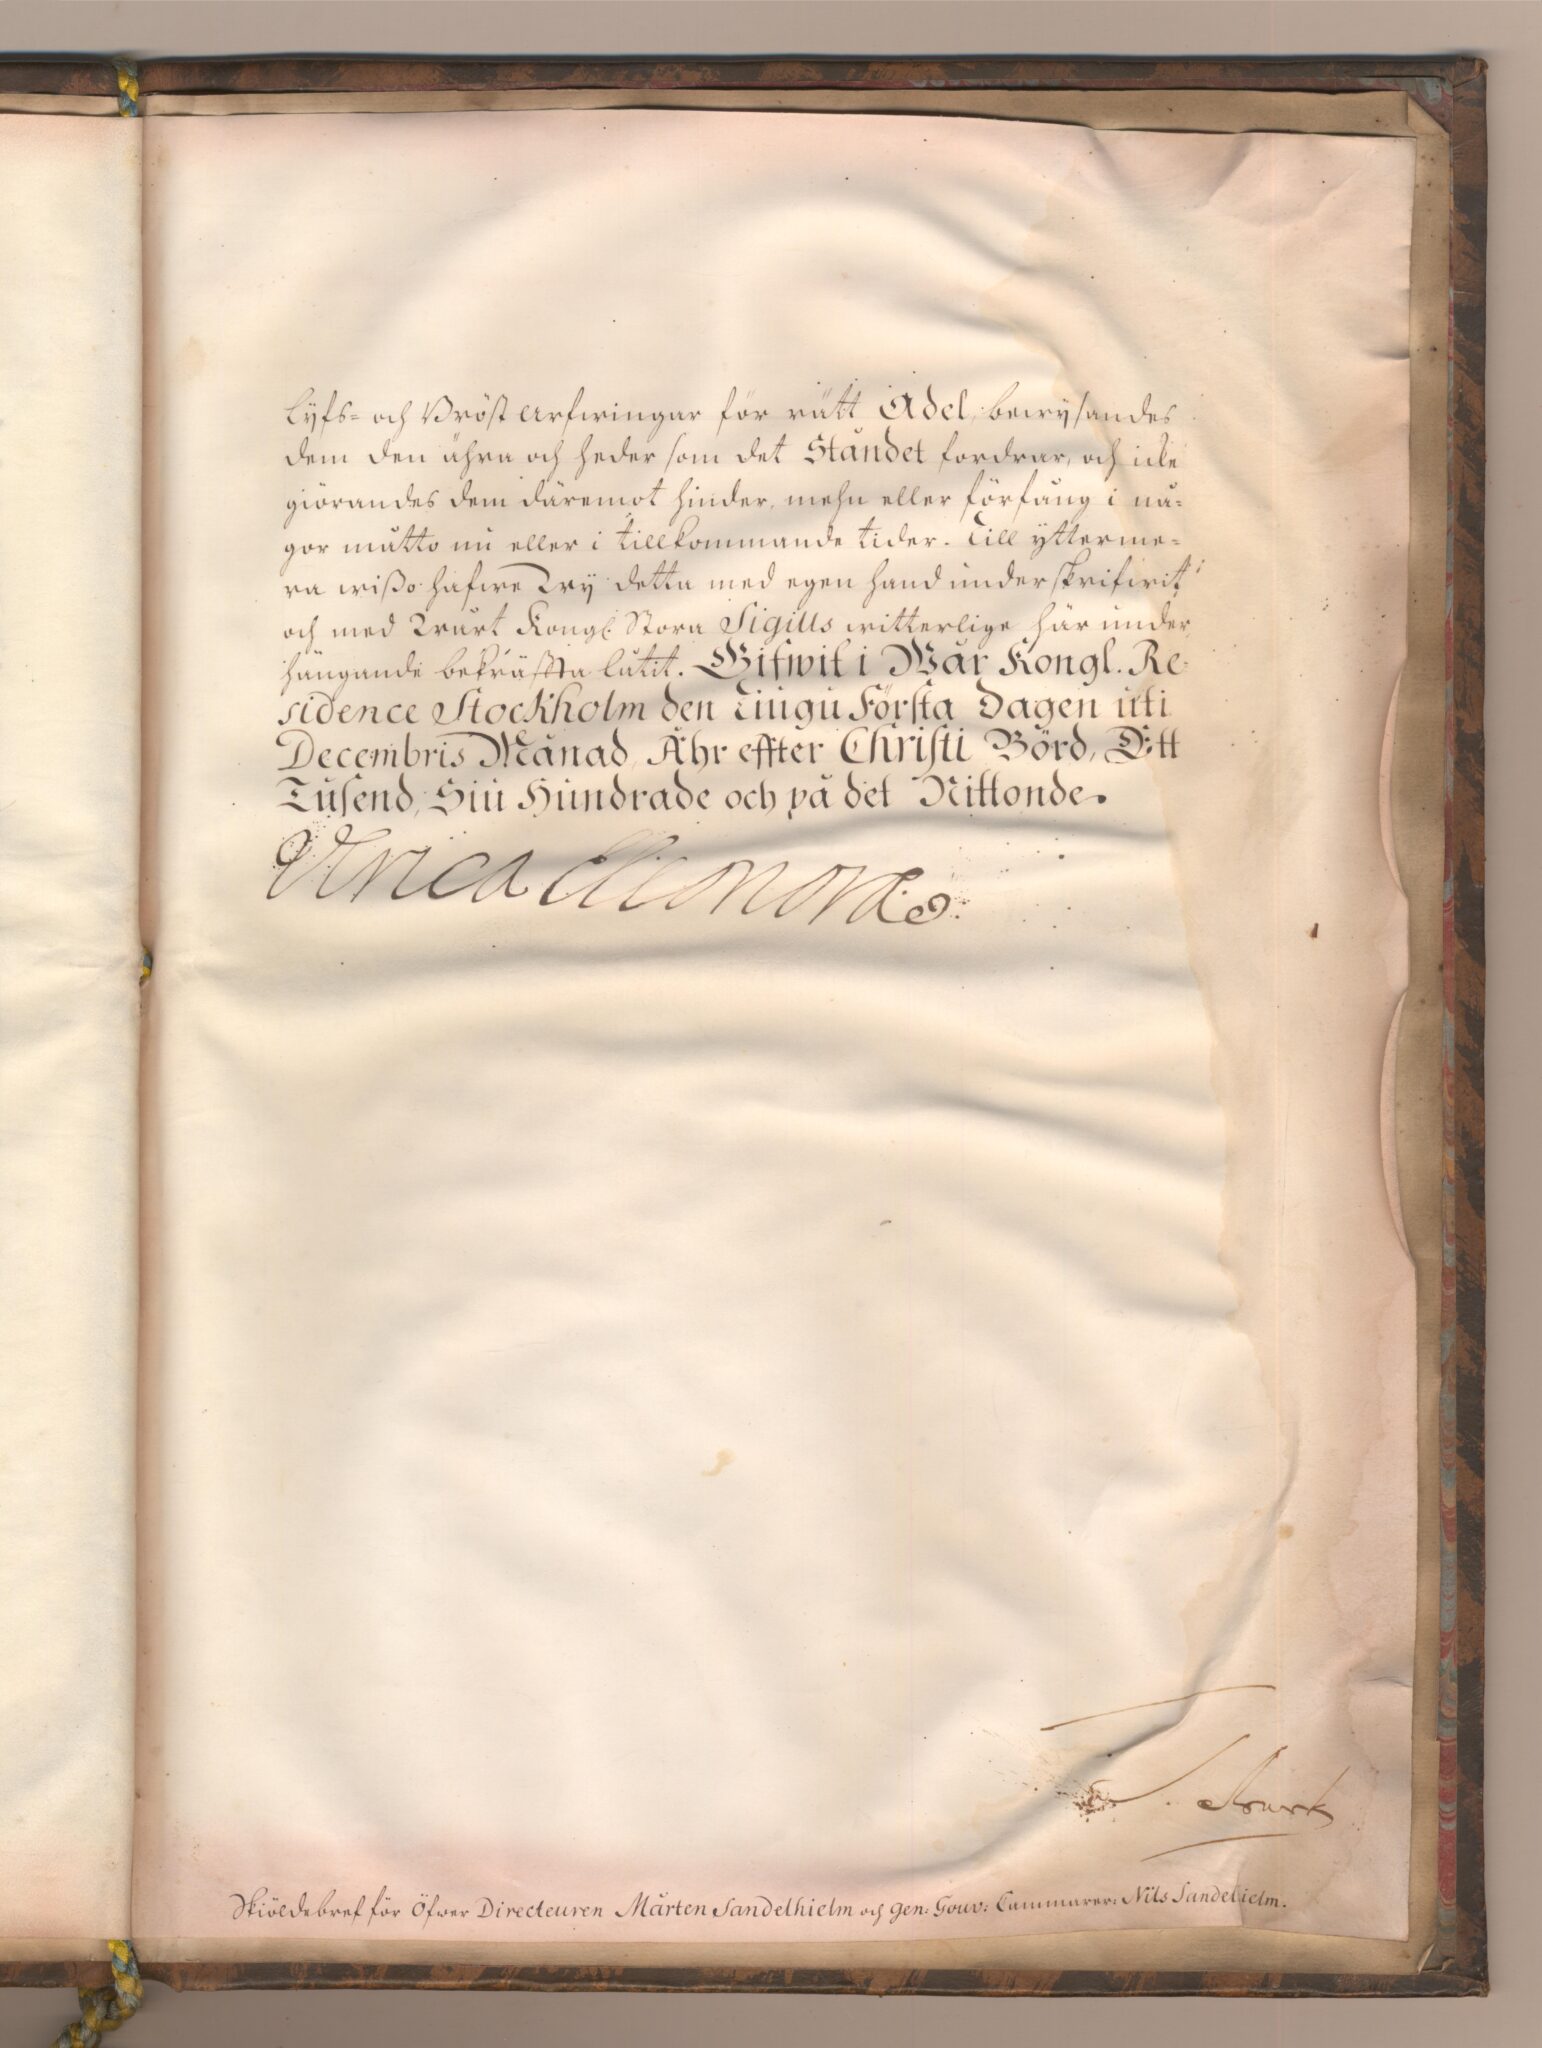 Lyfs- och Bröst Arfwingar för rätt Adel, bewysandes
dem den ähra och heder som det Ståndet fordrar, och icke
giörandes dem däremot hinder, mehn eller förfång i nå-
gor måtto nu eller i tillkommande tider. Till ytterme-
ra wißo hafwe Wy detta med egen hand underskrifwit
och med Wårt Kongl. Stora Sigills witterlige här under
hängande bekräffta låtit. Gifwit i Wår Kongl. Re-
sidence Stockholm den Tiugu Första Dagen uti
Decembris Månad, Åhr effter Christi Börd, Ett
Tusend, Siu Hundrade och på det Nittonde.
Ulrica Eleonora
Skiöldebref för Öfwer Directeuren Mårten Sandelhielm och Gen: Gouv: Cammarer: Nils Sandelhielm.